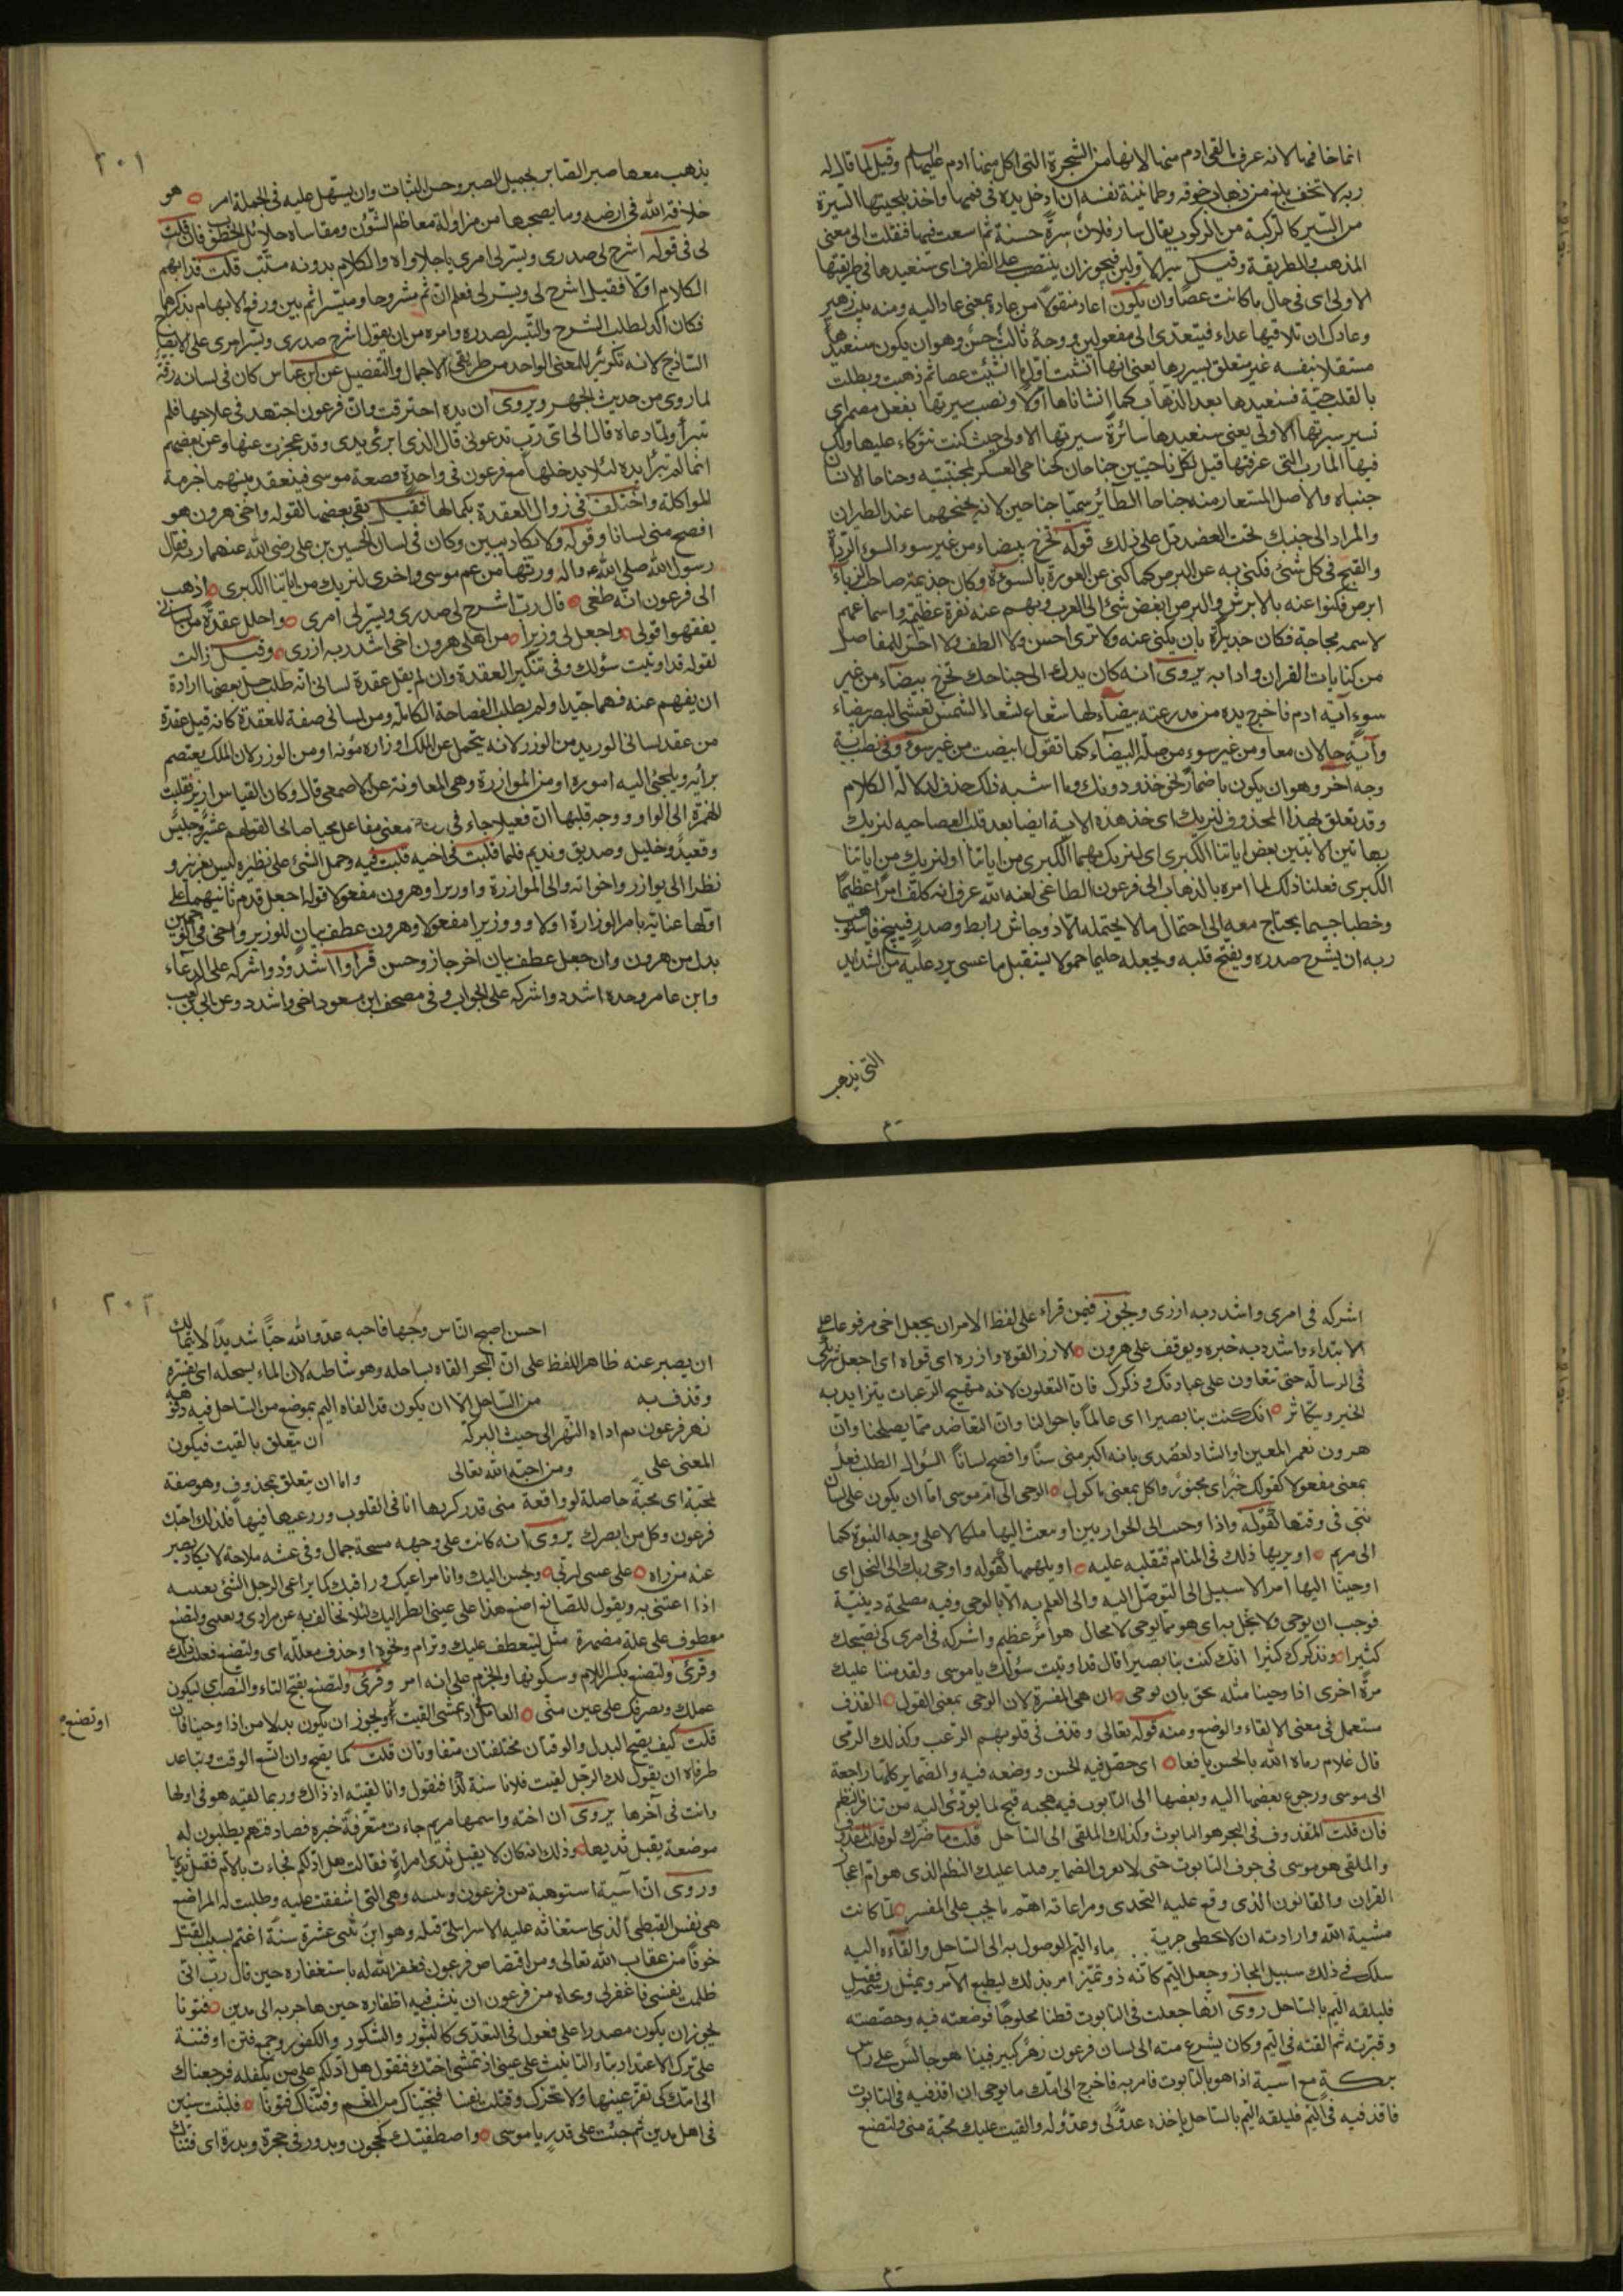 انما خافها لانه عرف ما لقى ادم منها لانها من الشجرة التى اكل منها ادم عليه السلم وقيل لما قال له
ربه لا تخف بلغ من ذهاب خوفه وطمانينة نفسه ان ادخل يده فى فمها واخذ بلحيتها السيرة
من السير كالركبة من الركوب يقال سار فلان سيرة حسنة ثم اتسعت فيها فنقلت الى معنى
المذهب والطريقة وقيل سير الاولين فيجوز ان ينتصب على الظرف اى سنعيدها فى طريقتها
الاولى اى فى حال ما كانت عصا وان يكون اعاد منقولا من عاده بمعنى عاد اليه ومنه بيت زهير
وعادك ان تلاقيها عداء فيتعدى الى مفعولين ووجه ثالث حسن وهو ان يكون سنعيدها
مستقلا بنفسه غير متعلق بسيرتها بمعنى انها انشئت اول ما انشئت عصا ثم ذهبت وبطلت
بالقلب حية فسنعيدها بعد الذهاب كما انشاناها اولا ونصب سيرتها بفعل مضمر اى
تسير سيرتها الاولى يعنى سنعيدها سائرة سيرتها الاولى حيث كنت تتوكاء عليها ولك
فيها المارب التى عرفتها قيل لكل ناحيتين جناحان كجناحى العسكر لمجنبتيه وجناحا الانسان
جنباه والاصل المستعار منه جناحا الطائر سميا جناحين لانه يجنحهما عند الطيران
والمراد الى جنبك تحت العضد دل على ذلك قوله تخرج بيضاء من غير سوء السوء الرداة
والقبح فى كل شئ فكنى به عن البرص كما كنى عن العورة بالسوءة وكان جذيمة صاحب الزباء
ابرص فكنوا عنه بالابرش والبرص ابغض شئ الى العرب وبهم عنه نفرة عظيمة واسماعهم
لاسمه مجاجة فكان جديرا بان يكنى عنه ولا ترى احسن ولا الطف ولا احز للمفاصل
من كنايات القران وادابه يروى انه كان يدك الى جناحك تخرج بيضاء من غير
سوء آية ادم فاخرج يده من مدرعته بيضاء لها شعاع كشعاع الشمس تعشى البصر بيضاء
وآية حالان معا ومن غير سوء من صلة البيضاء كما تقول ابيضت من غير سوء وفى نصب آية
وجه اخر وهو ان يكون باضمار نحو خذ ودونك وما اشبه ذلك حذف لدلالة الكلام
وقد تعلق بهذا المحذوف لنريك اى خذ هذه الاية ايضا بعد قلب العصا حية لنريك
بهاتين الايتين بعض اياتنا الكبرى اى لنريك بهما الكبرى من اياتنا او لنريك من اياتنا
الكبرى فعلنا ذلك لما امره بالذهاب الى فرعون الطاغى لعنه الله عرف انه كلف امرا عظيما
وخطبا جسيما يحتاج معه الى احتمال ما لا يحتمله الا ذو جاش رابط وصدر فسيح فاستوهب
ربه ان يشرح صدره ويفتح قلبه ويجعله حليما حمولا يستقبل ما عسى يرد عليه من الشدائد
التى يذهب
٢٠١
يذهب معها صبر الصابر بجميل الصبر وحسن الثبات وان يسهل عليه فى الجملة امره هو
خلافة الله فى ارضه وما يصحبها من مزاولة معاظم الشؤن ومقاساة جلائل الخطوب فان قلت
لى فى قوله اشرح لى صدرى ويسر لى امرى ما جدواه والكلام بدونه مستتب قلت قد ابهم
الكلام اولا فقيل اشرح لى ويسر لى فعلم ان ثم مشروحا وميسرا ثم بين ورفع الابهام بذكرهما
فكان اكد لطلب الشرح والتيسر لصدره وامره من ان يقول اشرح صدرى ويسر امرى على الايضاح
الساذج لانه تكرير للمعنى الواحد من طريقى الاجمال والتفصيل عن ابن عباس كان فى لسانه رتة
لما روى من حديث الجمر ويروى ان يده احترقت وان فرعون اجتهد فى علاجها فلم
تبرأ ولما دعاه قال الى اى رب تدعونى قال الذى ابرئ يدى وقد عجزت عنها وعن بعضهم
انما لم تبرأ يده لئلا يدخلها مع فرعون فى واحدة قصعة موسى فينعقد بينهما حرمة
المواكلة واختلف فى زوال العقدة بكمالها فقيل بقى بعضها لقوله واخى هرون هو
افصح منى لسانا وقوله ولا يكاد يبين وكان فى لسان الحسين بن على رضى الله عنهما رتة فقال
رسول الله صلى الله عليه واله ورثتها من عم موسى واخرى لنريك من اياتنا الكبرى اذهب
الى فرعون انه طغى قال رب اشرح لى صدرى ويسر لى امرى واحلل عقدة من لسانى
يفقهوا قولى واجعل لى وزيرا من اهلى هرون اخى اشدد به ازرى وقيل زالت
لقوله قد اوتيت سؤلك وفى تنكير العقدة وان لم يقل عقدة لسانى انه طلب حل بعضها ارادة
ان يفهم عنه فهما جيدا ولم يطلب الفصاحة الكاملة ومن لسانى صفة للعقدة كانه قيل عقدة
من عقد لسانى الوزير من الوزر لانه يتحمل عن الملك اوزاره ومؤنه او من الوزر لان الملك يعتصم
برأيه ويلجئ اليه اموره او من الموازرة وهى المعاونة عن الاصمعى قال وكان القياس ازير فقلبت
الهمزة الى الواو ووجه قلبها ان فعيلا جاء فى معنى مفاعل مجيا صالحا لقولهم عشير وجليس
وقعيد وخليل وصديق ونديم فلما قلبت فى اخيه قلبت فيه وحمل الشئ على نظيره ليس بعزيز و
نظرا الى يوازر واخواته والى الموازرة وازيرا وهرون مفعولا قوله اجعل قدم ثانيهما على
اولهما عناية بامر الوزارة اولا ووزيرا مفعولا وهرون عطف بيان للوزير واخى فى الوجهين
بدل من هرون وان جعل عطف بيان اخر جاز وحسن قراوا اشدد واشركه على الدعاء
وابن عامر وحده اشدد واشركه على الجواب وفى مصحف ابن مسعود اخى واشدد وعن ابى بن كعب
اشركه فى امرى واشدد به ازرى ويجوز فيمن قراء على لفظ الامر ان يجعل اخى مرفوعا على
الابتداء واشدد به خبره ويوقف على هرون الازر القوة وازره اى قواه اى اجعل شريكى
فى الرسالة حتى نتعاون على عبادتك وذكرك فان التعاون لانه مهيج الرغبات يتزايد به
الخير ويتكاثر انك كنت بنا بصيرا اى عالما باحوالنا وان التعاضد مما يصلحنا وان
هرون نعم المعين والشاد لعضدى بانه اكبر منى سنا وافصح لسانا السؤال الطلب فعل
بمعنى مفعول كقولك خبز اى مخبوز واكل بمعنى ماكول الوحى الى ام موسى اما ان يكون على لسان
نبى فى وقتها كقوله واذا وحيت الى الحواريين او بعث اليها ملكا لا على وجه النبوة كما
الى مريم او يريها ذلك فى المنام فتنبه عليه او يلهمها كقوله واوحى ربك الى النحل اى
اوحينا اليها امرا لا سبيل الى التوصل اليه والى العلم به الا بالوحى وفيه مصلحة دينية
فوجب ان يوحى ولا يخل به اى هو مما يوحى لا محال هو امر عظيم واشركه فى امرى كى نسبحك
كثيرا ونذكرك كثيرا انك كنت بنا بصيرا قال قد اوتيت سؤلك يا موسى ولقد مننا عليك
مرة اخرى اذ اوحينا مثله يحق بان يوحى ان هى المفسرة لان الوحى بمعنى القول القذف
مستعمل فى معنى الالقاء والوضع ومنه قوله تعالى وقذف فى قلوبهم الرعب وكذلك الرمى
قال غلام رماه الله بالحسن يافعا اى حصل فيه الحسن ووضعه فيه والضماير كلها راجعة
الى موسى ورجوع بعضها اليه وبعضها الى التابوت فيه هجنة قبيح لما يودى اليه من تنافر النظم
فان قلت المقذوف فى البحر هو التابوت وكذلك الملقى الى الساحل قلت ما ضرك لو قلت المقذوف
والملقى هو موسى فى جوف التابوت حتى لا تفرق الضماير فيتنافر عليك النظم الذى هو ام اعجاز
القران والقانون الذى وقع عليه التحدى ومراعاته اهم ما يجب على المفسر لما كانت
مشية الله وارادته ان لا يخطى جرية ماء اليم الوصول به الى الساحل والقاءه اليه
سلك فى ذلك سبيل المجاز وجعل اليم كانه ذو تمييز امر بذلك ليطيع الامر ويمتثل رسمه فقيل
فليلقه اليم بالساحل روى انها جعلت فى التابوت قطنا محلوجا فوضعته فيه وجصصته
وقيرته ثم القته فى اليم وكان يشرع منه الى بستان فرعون نهر كبير فبينا هو جالس على راس
بركة مع اسية اذا هو بالتابوت فامر به فاخرج الى امك ما يوحى ان اقذفيه فى التابوت
فاقذفيه فى اليم فليلقه اليم بالساحل ياخذه عدو لى وعدو له والقيت عليك محبة منى ولتصنع
٢٠٢
احسن اصبح الناس وجها فاحبه عدو الله حبا شديدا لا يتمالك
ان يصبر عنه ظاهر اللفظ على ان البحر القاه بساحله وهو شاطيه لان الماء يسحله اى يقشره
وقذف به من الساحل الا ان يكون قد القاه اليم بموضع من الساحل فيه فوهة
نهر فرعون ثم اداه النهر الى حيث البركة ان يتعلق بالقيت فيكون
المعنى على ومن احبه الله تعالى واما ان يتعلق بمحذوف وهو صفة
لمحبة اى محبة حاصلة او واقعة منى قد ركزتها انا فى القلوب وزرعتها فيها فلذلك احبك
فرعون وكل من ابصرك يروى انه كانت على وجهه مسحة جمال وفى عينيه ملاحة لا يكاد يصبر
عنه من راه على عينى لتربى ويحسن اليك وانا مراعيك وراقبك كما يراعى الرجل الشئ بعينيه
اذا اعتنى به ويقول للصانع اصنع هذا على عينى انظر اليك لئلا تخالف به عن مرادى وبغيتى ولتصنع
معطوف على علة مضمرة مثل ليتعطف عليك وترام ونحوه او حذف معلله اى ولتصنع فعلت ذلك
وقرئ ولتصنع بكسر اللام وسكونها والجزم على انه امر وقرئ ولتصنع بفتح التاء والنصب اى ليكون
عملك وتصرفك على عين منى العامل اذ تمشى القيت او تصنع ويجوز ان يكون بدلا من اذ اوحينا فان
قلت كيف يصح البدل والوقتان مختلفتان متفاوتان قلت كما يصح وان اتسع الوقت وتباعد
طرفاه ان يقول لك الرجل لقيت فلانا سنة كذا فتقول وانا لقيته اذ ذاك وربما لقيه هو فى اولها
وانت فى آخرها يروى ان اخته واسمها مريم جاءت متعرفة خبره فصادفتهم يطلبون له
موضعة يقبل ثديها وذلك انه كان لا يقبل ثدى امراة فقالت هل ادلكم فجاءت بالام فقبل ثديها
وروى ان آسية استوهبته من فرعون وتبنته وهى التى اشفقت عليه وطلبت له المراضع
هى نفس القبطى الذى استغاثه عليه الاسرائيلى قتله وهو ابن ثنتى عشرة سنة اغتم بسبب القتل
خوفا من عقاب الله تعالى ومن اقتصاص فرعون فغفر الله له باستغفاره حين قال رب انى
ظلمت نفسى فاغفر لى ونجاه من فرعون ان ينشب فيه اظفاره حين هاجر به الى مدين فتونا
يجوز ان يكون مصدرا على فعول فى التعدى كالثبور والشكور والكفور وجمع فتن او فتنة
على ترك الاعتداد بتاء التانيث على عينى اذ تمشى اختك فتقول هل ادلكم على من يكفله فرجعناك
الى امك كى تقر عينها ولا تحزن وقتلت نفسا فنجيناك من الغم وفتناك فتونا فلبثت سنين
فى اهل مدين ثم جئت على قدر يا موسى واصطنعتك كحجور وبدور فى حجرة وبدرة اى فتناك
او تصنع